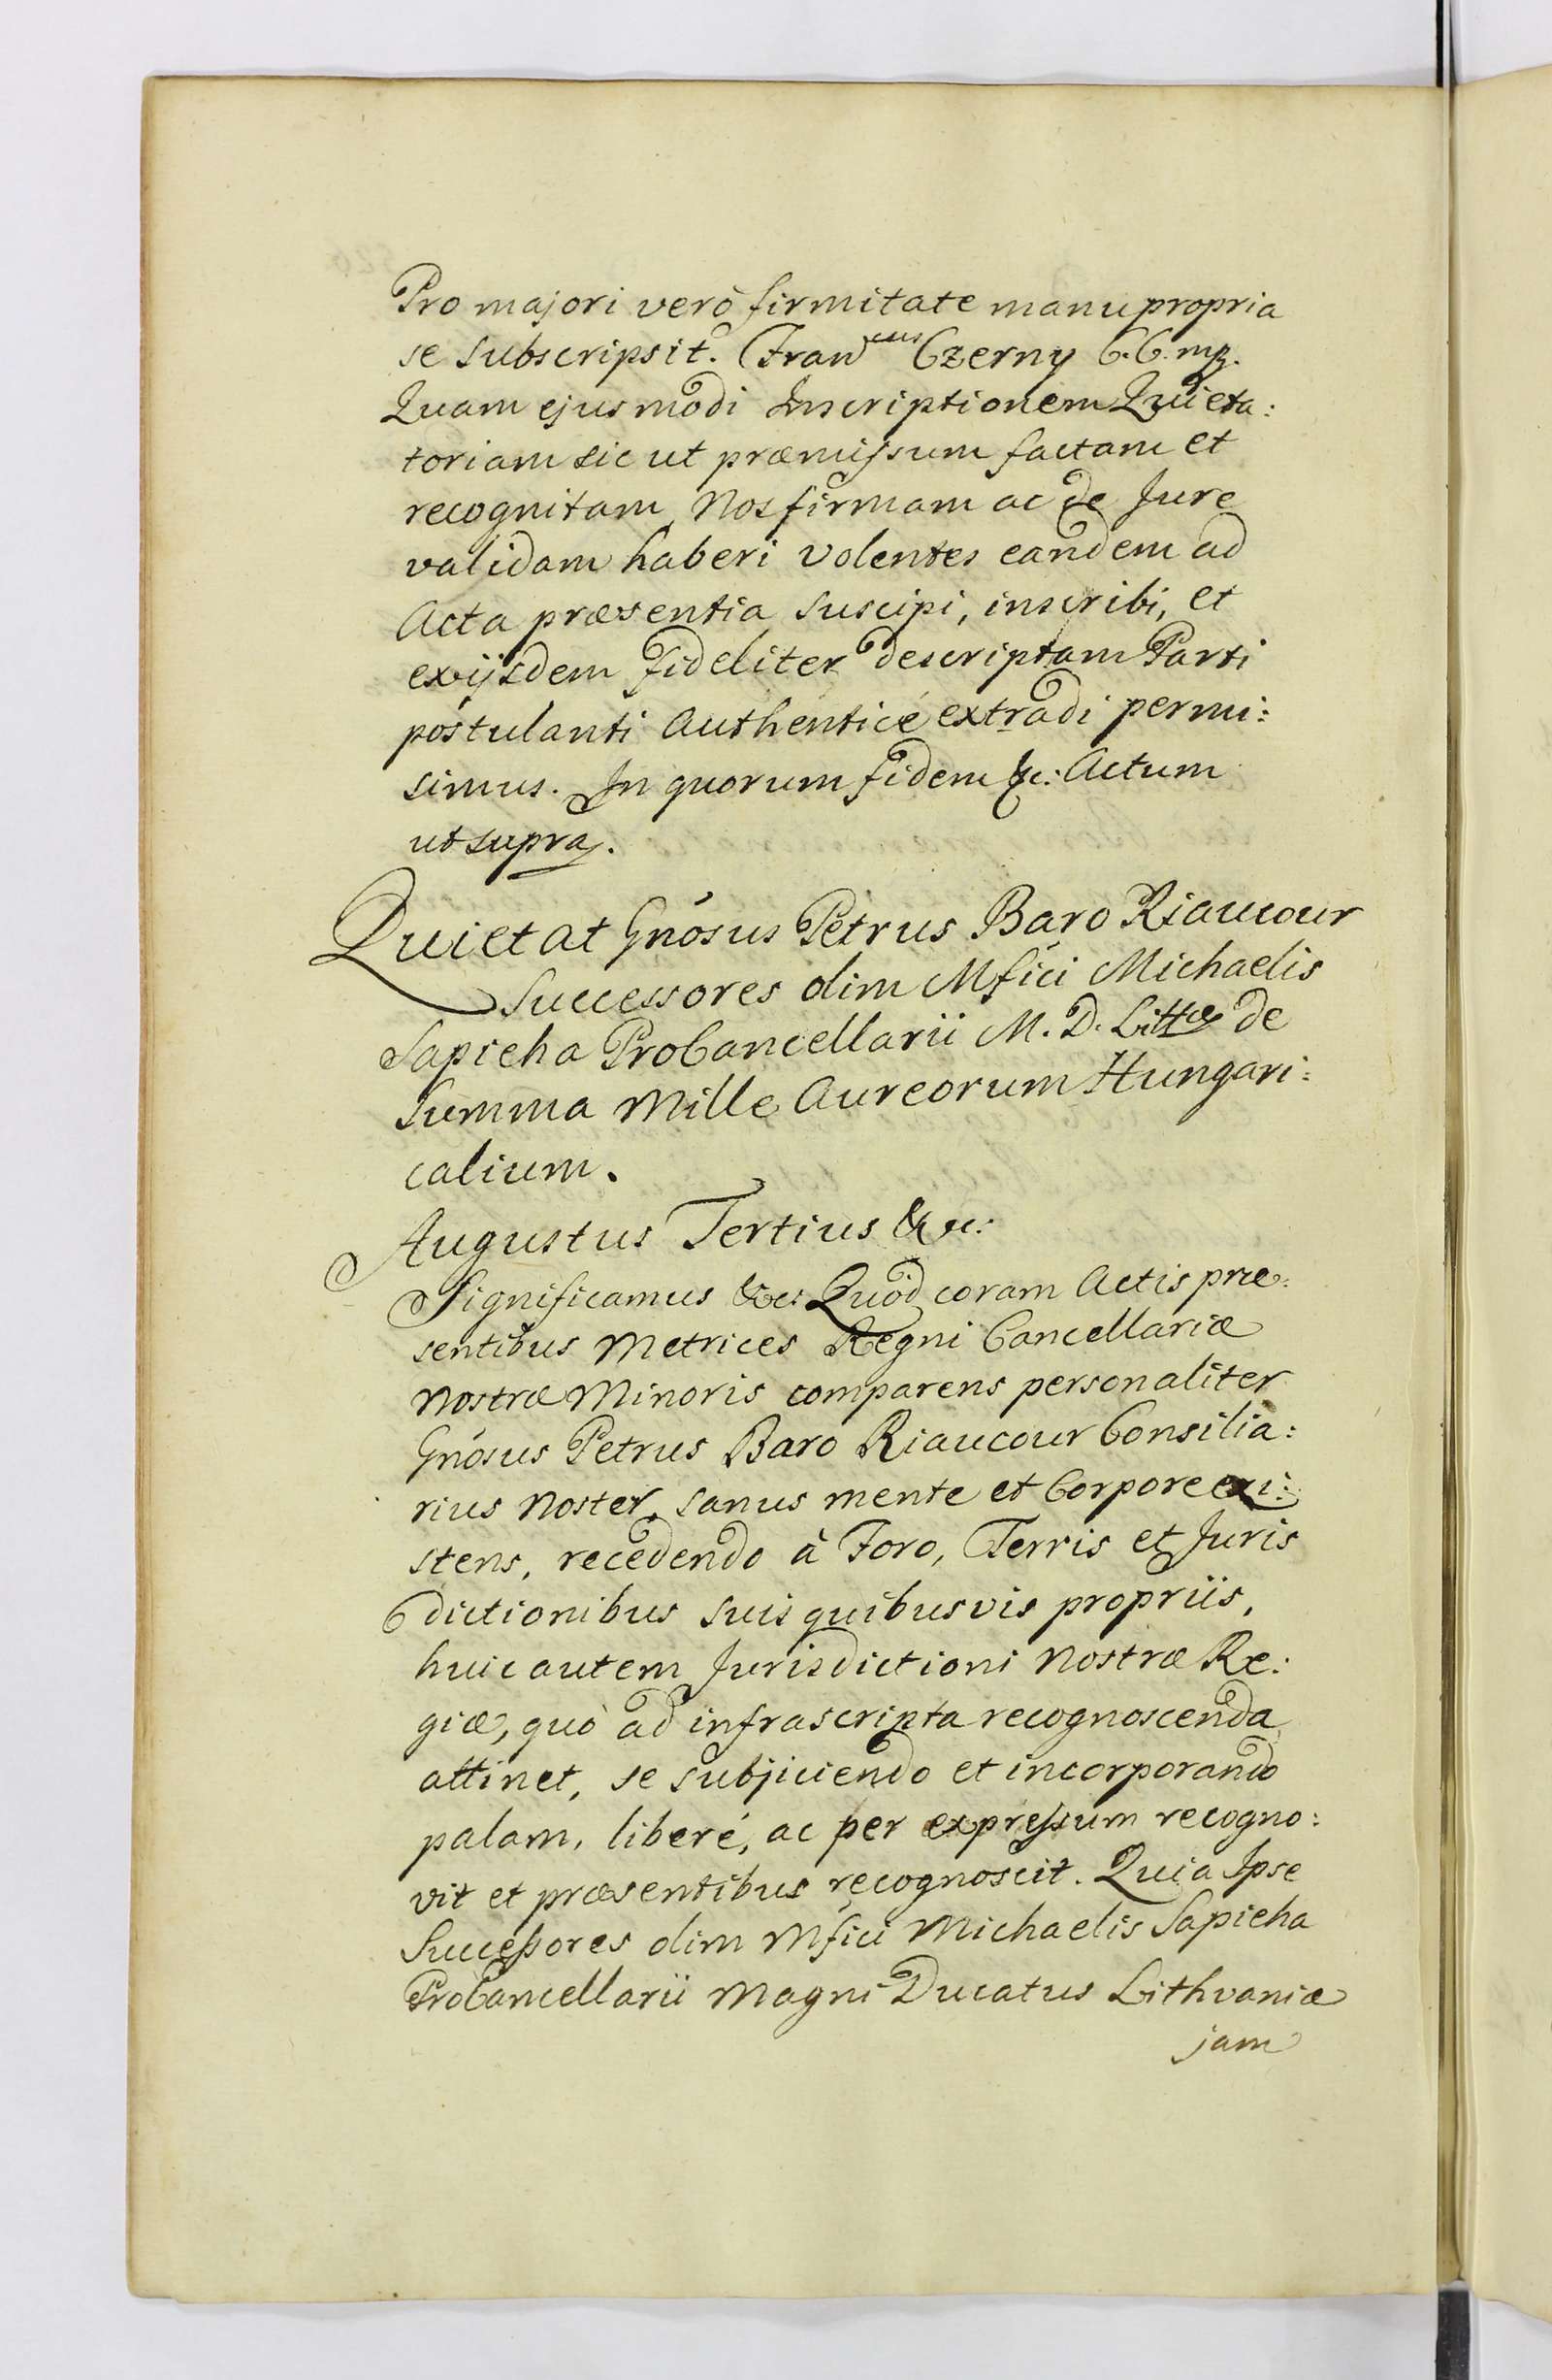 Pro majori verò firmitate manu propria
se subscripsit. Fran^cus Czerny C. C. mp.
Quam ejusmodi Inscriptionem Quieta:
toriam sic ut præmissum factam et
recognitam Nos firmam ac de Jure
validam haberi volentes eandem ad
Acta præsentia suscipi, inscribi, et
ex ijsdem fideliter descriptam Parti
postulanti Authenticé extradi permi:
simus. In quorum fidem &c: Actum
ut supra.
Quietat Gnosus Petrus Baro Riaucour
Successores olim Mfici Michaelis
Sapieha ProCancellarii M. D. Littæ de
Summa Mille Aureorum Hungari:
calium.
Augustus Tertius &c:
Significamus &c: Quod coram Actis præ:
sentibus Metrices Regni Cancellariæ
Nostræ Minoris comparens personaliter
Gnosus Petrus Baro Riaucour Consilia:
rius Noster, sanus mente et Corpore exi:
stens, recedendo à Foro, Terris et Juris
dictionibus suis quibusvis propriis,
huic autem Jurisdictioni Nostræ Re:
giæ, quò ad infrascripta recognoscenda
attinet, se subjiciendo et incorporando
palam, liberé, ac per expressum recogno:
vit et præsentibus recognoscit. Quia Ipse
Successores olim Mfici Michaelis Sapieha
ProCancellarii Magni Ducatus Lithvaniæ
jam